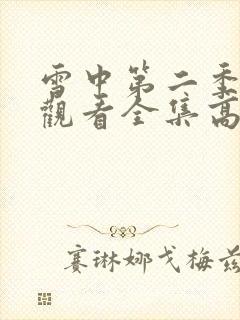 雪中第二季
觀看全集高
赛琳娜戈梅兹